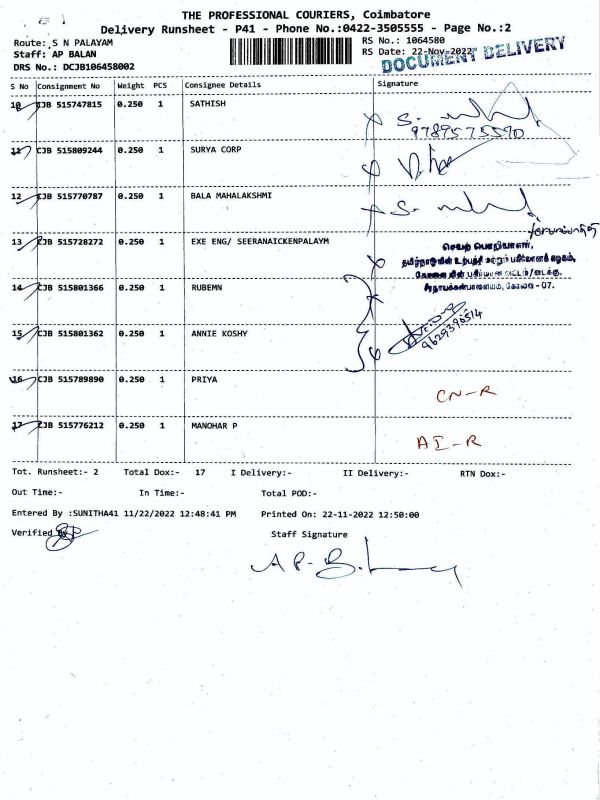 THE PROFESSIONAL COURIERS, Coimbatore
Delivery Runsheet - P41 - Phone No.:0422-3505555 - Page No.:2
Route: S N PALAYAM
RS No.: 1064580
Staff: AP BALAN
RS Date: 22-Nov-2022
DOCUMENT DELIVERY
DRS No.: DCJB106458002
S No Consignment No Weight PCS Consignee Details Signature
10 CJB 515747815 0.250 1 SATHISH
9789575590
11 CJB 515809244 0.250 1 SURYA CORP
12 CJB 515770787 0.250 1 BALA MAHALAKSHMI
13 CJB 515728272 0.250 1 EXE ENG/ SEERANAICKENPALAYM
செயற் பொறியாளர்,
14 CJB 515801366 0.250 1 RUBEMN
கோவை - 07.
15 CJB 515801362 0.250 1 ANNIE KOSHY
9629396514
16 CJB 515789890 0.250 1 PRIYA
CN-R
17 CJB 515776212 0.250 1 MANOHAR P
AI-R
Tot. Runsheet:- 2 Total Dox:- 17 I Delivery:- II Delivery:- RTN Dox:-
Out Time:- In Time:- Total POD:-
Entered By :SUNITHA41 11/22/2022 12:48:41 PM Printed On: 22-11-2022 12:50:00
Verified By
Staff Signature